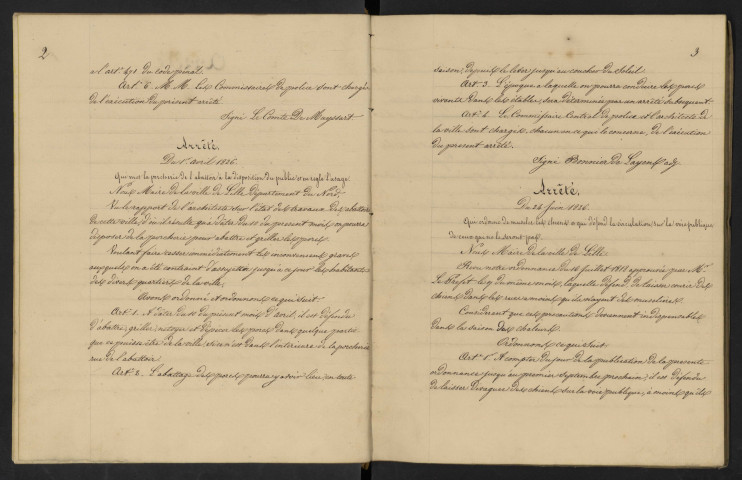 2
et l'art. 471 du code pénal.
Art. 6. M.M. les Commissaires de police sont chargés
de l'exécution du présent arrêté.
Signé Le Comte De Muyssart
Arrêté.
Du 1er avril 1826.
Qui met la porcherie de l'abattoir à la disposition du public et en règle l'usage.
Nous Maire de la ville de Lille, Département du Nord,
Vu le rapport de l'architecte sur l'état des travaux de l'abattoir
de cette ville, d'où il résulte qu'à dater du 10 du présent mois, on pourra
disposer de la porcherie pour abattre et griller les porcs.
Voulant faire cesser immédiatement les inconvéniens graves
auxquels on a été contraint d'assujettir jusqu'à ce jour les habitants
des divers quartiers de la ville,
Avons ordonné et ordonnons ce qui suit:
Art. 1. A dater du 10 du présent mois d'avril, il est défendu
d'abattre, griller, nétoyer et dépecer les porcs dans quelque partie
que ce puisse être de la ville, si ce n'est dans l'intérieur de la porcherie
rue de l'abattoir.
Art. 2. L'abattage des porcs pourra y avoir lieu en toute
3
saison, depuis le lever jusqu'au coucher du Soleil.
Art. 3. L'époque à laquelle on pourra conduire les porcs
vivants dans les étables, sera déterminée par un arrêté subséquent.
Art. 4. Le Commissaire Central de police et l'architecte de
la ville sont chargés, chacun en ce qui le concerne, de l'exécution
du présent arrêté.
Signé Bonnier de Layens adj.
Arrêté.
Du 26 Juin 1826.
Qui ordonne de museler les chiens et qui défend la circulation sur la voie publique
de ceux qui ne le seront pas.
Nous Maire de la ville de Lille.
Revu notre ordonnance du 18 Juillet 1818 approuvée par Mr.
le Préfet le 9 du même mois, laquelle défend de laisser courir des
chiens dans les rues à moins qu'ils n'ayent des muselières.
Considérant que ces précautions deviennent indispensables
dans la saison des chaleurs.
Ordonnons ce qui suit:
Art. 1er. A compter du jour de la publication de la présente
ordonnance jusqu'au premier septembre prochain, il est défendu
de laisser divaguer des chiens sur la voie publique, à moins qu'ils